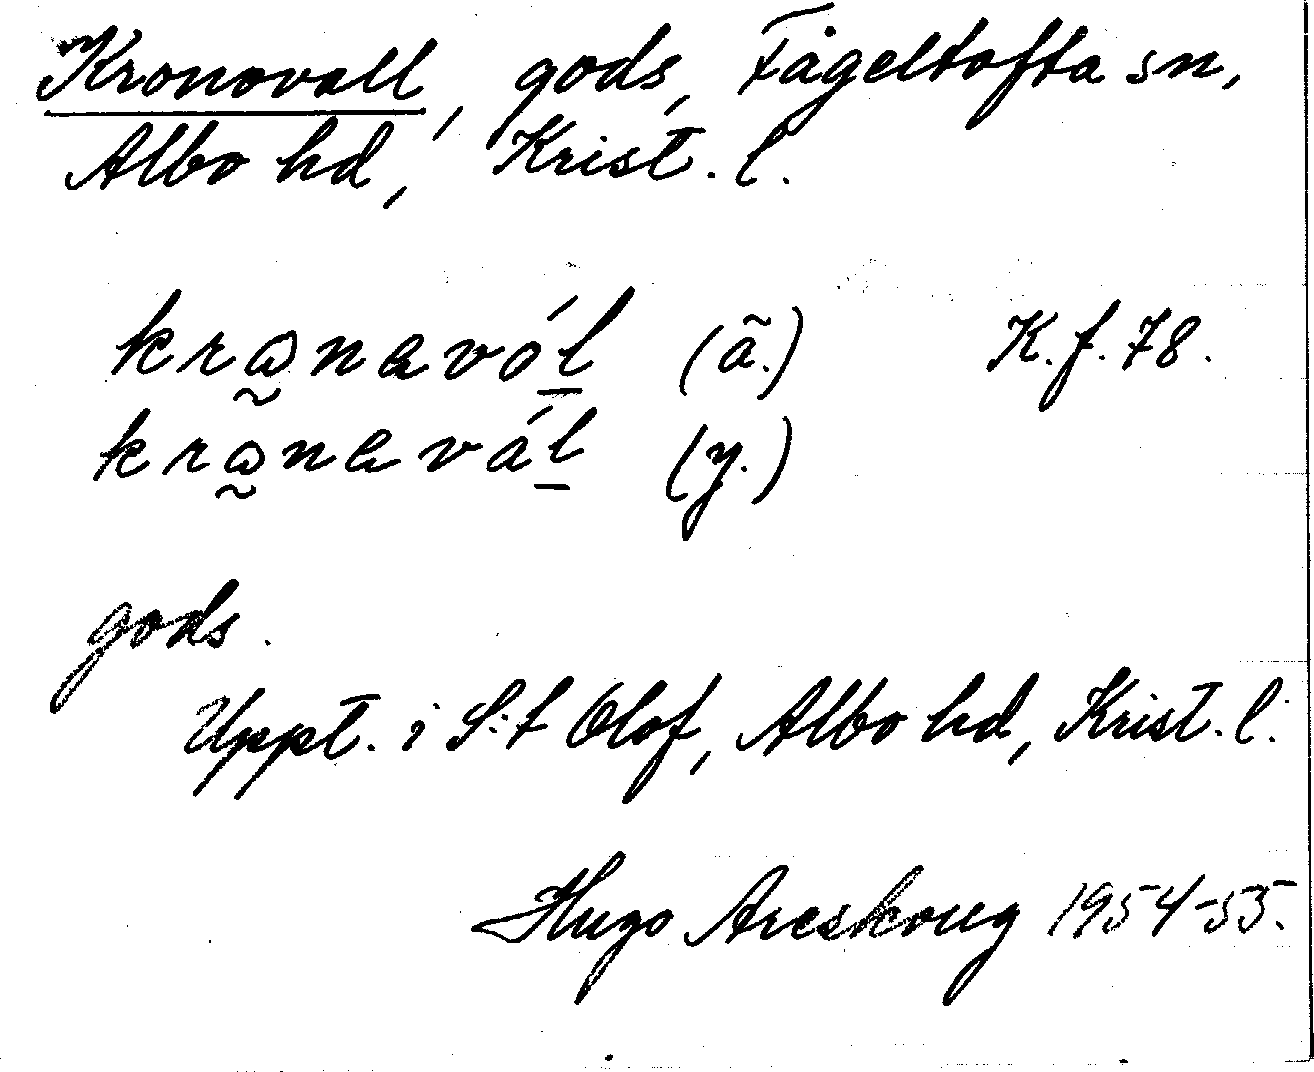 Kronovall, gods, Fågeltofta sn,
Albo hd, Krist. l.
krω̰nɐvó̲l (ã.) K.f. 78.
krω̰nɐvál̲ (y.)
gods.
Uppt. i S:t Olof, Albo hd, Krist. l.
Hugo Areskoug 1954-55.